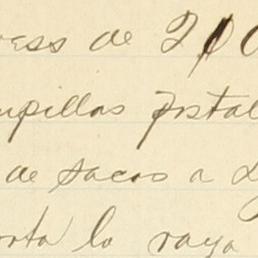 ress de 210
upillas postal
de sacos a
orta la raya